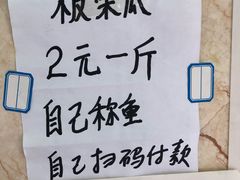 板栗瓜
2元一斤
自己称重
自己扫码付款